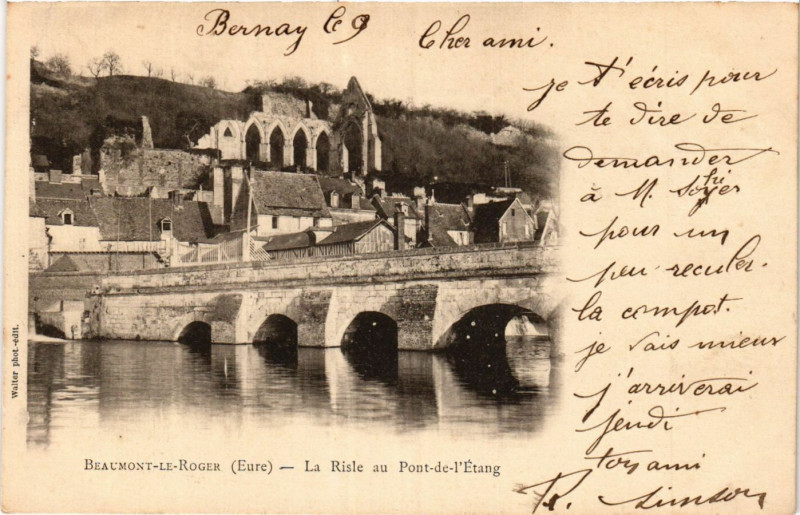 Bernay le 9
Cher ami.
je t'écris pour
te dire de
demander
à M.
pour un
peu reculer.
la compot.
je vais mieux
j'arriverai
jeudi
ton ami
R. Simson
BEAUMONT-LE-ROGER (Eure) — La Risle au Pont-de-l'Étang
Walter phot.-édit.